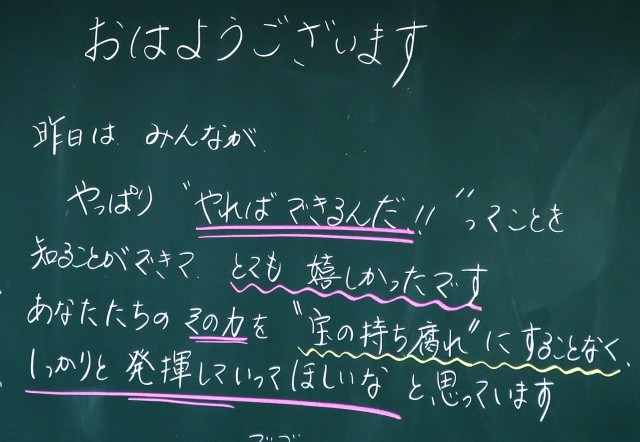 おはようございます
昨日は みんなが
やっぱり “やればできるんだ!!”ってことを
知ることができて、とても 嬉しかったです
あなたたちの その力を “宝の持ち腐れ”にすることなく、
しっかりと 発揮していってほしいな と思っています